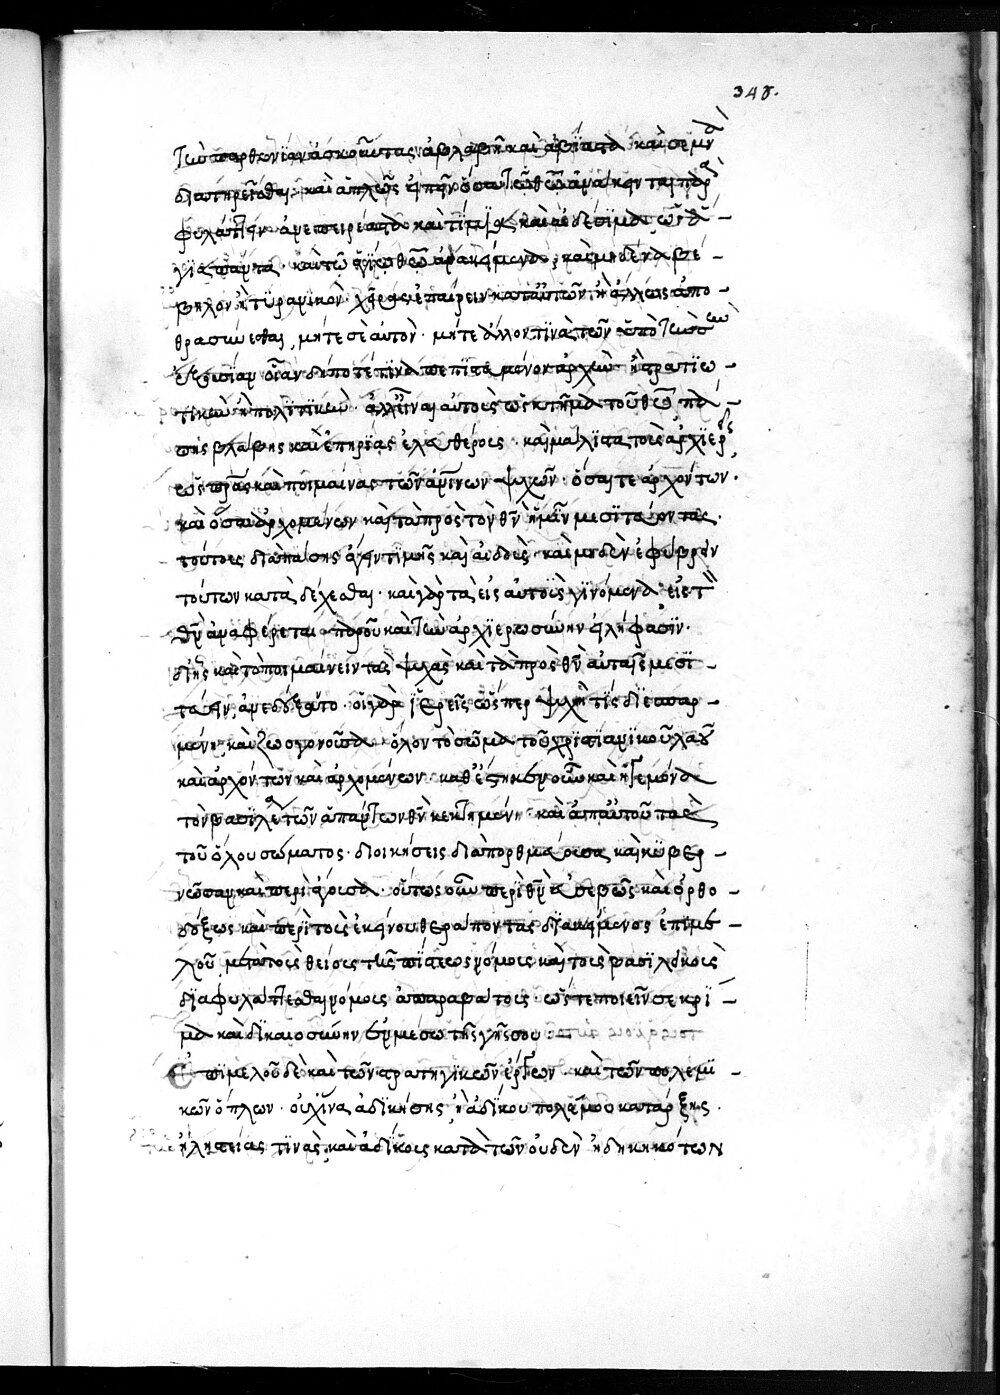 348.
τὴν παρθενίαν ἀσκούντας ἀβλαβῆ καὶ ἀβίαστα καὶ σεμνὰ
διατηρεῖσθαι· καὶ ἁπλῶς εἰπεῖν ὅσα τῷ θῶ ἀνάκειται παρα
φυλάττειν ἀνεπειρέαστα καὶ τίμια καὶ αἰδέσιμα, ὡς ἅ
για πάντα· καὶ τῶ ἁγίω θῶ ἀνακείμενα, καὶ μηδένα βέ
βηλον ἢ τυραννικὸν χεῖρας ἐπαίρειν κατ' αὐτῶν ἢ ἄλλως ἀπο
θρασύνεσθαι, μήτε σὲ αὐτὸν· μήτε ἄλλον τινὰ τῶν ὑπὸ τὴν σὴν
ἐξουσίαν οἵαν δήποτε τινὰ πεπιστευμένον ἀρχὴν ἢ στρατιω
τικὴν ἢ πολιτικὴν· ἀλλ' εἶναι αὐτοὺς ὡς κτῆμα τοῦ θῦ πά
σης βλάβης καὶ ἐπηρείας ἐλευθέρους· καὶ μάλιστα τοὺς ἀρχιερεῖς
ὡς πρας καὶ ποιμαίνας τῶν ἀμείνων ψυχῶν· ὅσαι τε ἀρχόντων·
καὶ ὅσαι ἀρχομένων καὶ τὰ πρὸς τὸν θν ἡμῖν μεσιτεύοντας·
τούτοις διὰ πάσης ἄγειν τιμῆς καὶ αἰδοῦς· καὶ μηδὲν ἐφύβριον
τούτων καταδέχεσθαι· καὶ γὰρ τὰ εἰς αὐτοὺς γινόμενα εἰς τὸν
θν ἀναφέρεται παρ' οὗ καὶ τὴν ἀρχιερωσύνην εἰλήφασιν·
δι' ἧς καὶ τὸ ποιμαίνειν τὰς ψυχὰς καὶ τὰ πρὸς θν αὐταῖς μεσι
τεύειν ἀνεδέξαντο· οἱ γὰρ ἱερεῖς ὥσπερ ψυχή τις διεσπαρ
μένη καὶ ζωογονοῦσα ὅλον τὸ σῶμα τοῦ χριστιανικοῦ λαοῦ
καὶ ἀρχόντων καὶ ἀρχομένων· καθέστηκε νοῦν καὶ ἡγεμόνα
τὸν βασιλέα τῶν ἁπάντων θν κεκτημένη· καὶ ἀπ' αὐτοῦ τὰς
τοῦ ὅλου σώματος διοικήσεις διαπορθμεύουσα καὶ κυβερ
νῶσα καὶ περιάγουσα· οὕτως οὖν περὶ θν εὐσεβῶς καὶ ὀρθο
δόξως καὶ περὶ τοὺς ἐκείνου θεράποντας διακείμενος ἐπιμε
λοῦ μετὰ τοὺς θείους τῆς πίστεως νόμους καὶ τοὺς βασιλικοὺς
διαφυλάττεσθαι νόμους ἀπαραβάτους· ὥστε ποιεῖν σε κρί
μα καὶ δικαιοσύνην ἐν μέσω τῆς γῆς σου
Ἐπιμελοῦ δὲ καὶ τῶν στρατηγικῶν ἔργων· καὶ τῶν πολεμι
κῶν ὅπλων· οὐχ ἵνα ἀδικήσης ἢ ἀδίκου πολέμου κατάρξης·
ἢ ληστείας τινὰς καὶ ἀδίκους κατὰ τῶν οὐδὲν ἠδικηκότων